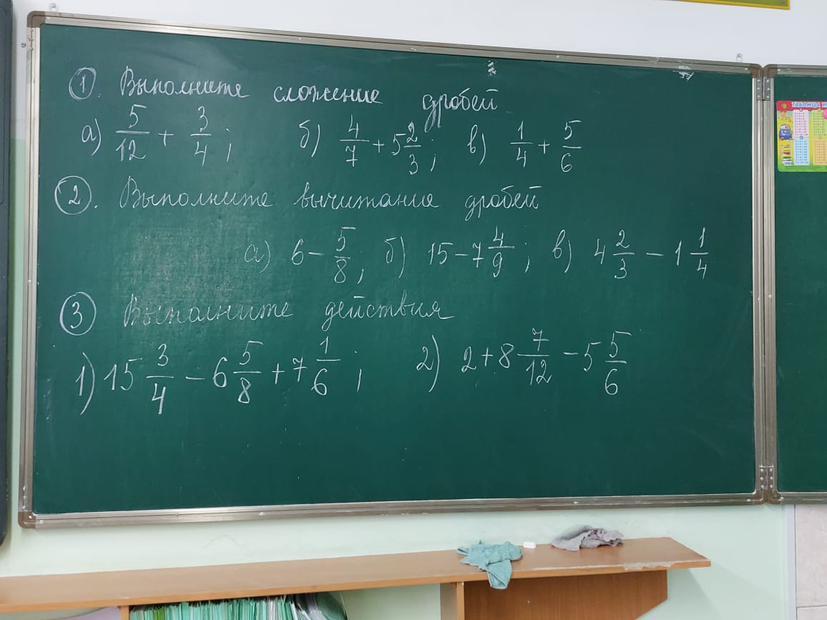 1. Выполните сложение дробей
а) 5/12 + 3/4; б) 4/7 + 5 2/3; в) 1/4 + 5/6
2. Выполните вычитание дробей
а) 6 - 5/8, б) 15 - 7 4/9; в) 4 2/3 - 1 1/4
3 Выполните действия
1) 15 3/4 - 6 5/8 + 7 1/6; 2) 2 + 8 7/12 - 5 5/6